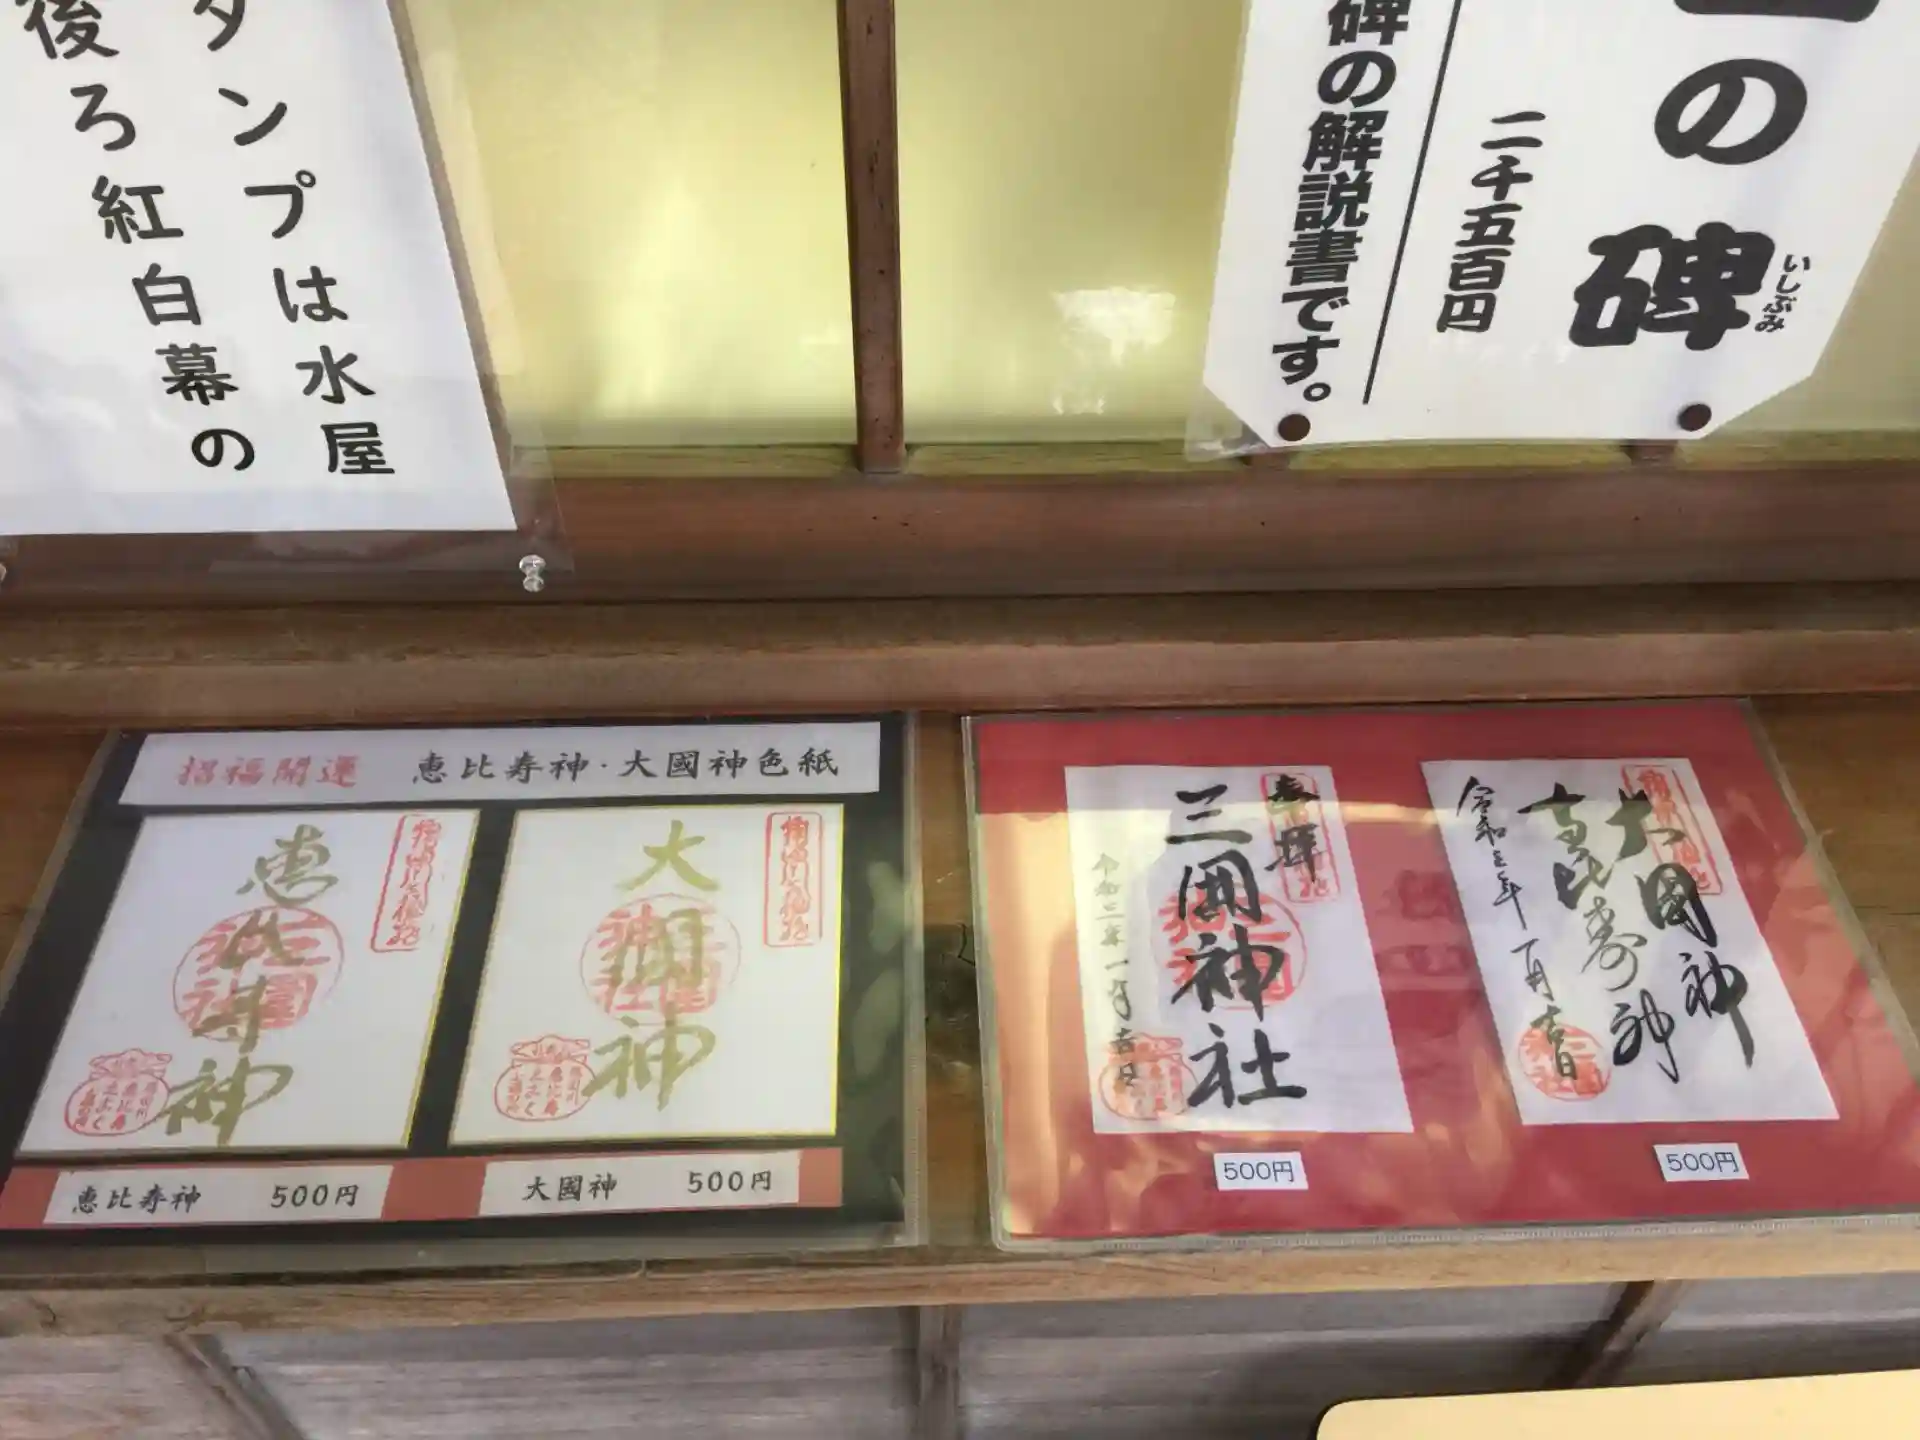 の碑
いしぶみ
二千五百円
碑の解説書です。
タンプは水屋
後ろ紅白幕の
招福開運 恵比寿神・大國神色紙
恵比寿神
大國神
恵比寿神 500円
大國神 500円
奉拝
三囲神社
令和三年一月吉日
500円
大國神
恵比寿神
令和三年一月吉日
500円